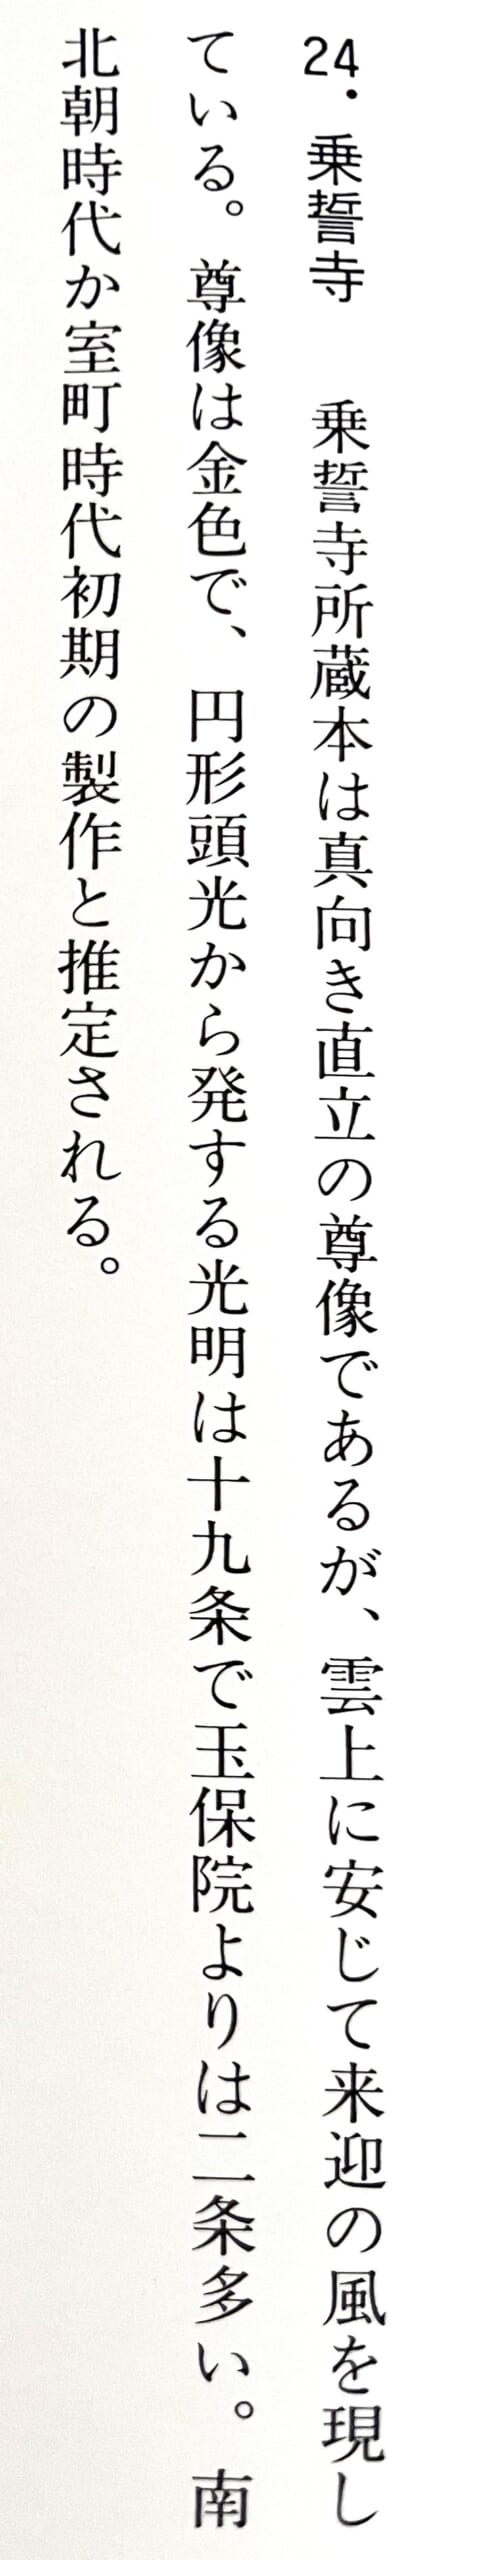 24. 乗誓寺　乗誓寺所蔵本は真向き直立の尊像であるが、雲上に安じて来迎の風を現し
ている。尊像は金色で、円形頭光から発する光明は十九条で玉保院よりは二条多い。南
北朝時代か室町時代初期の製作と推定される。